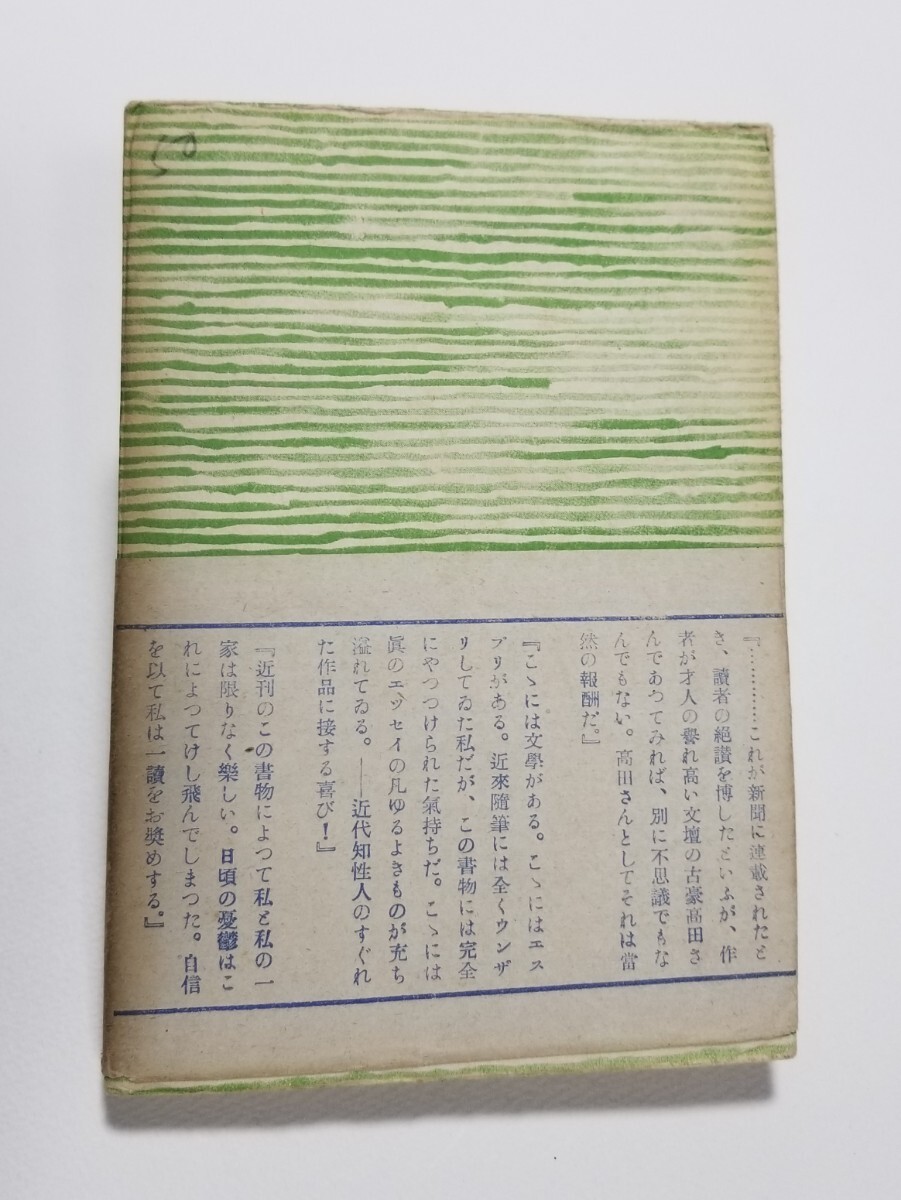 50
『…………これが新聞に連載されたと
き、讀者の絕讃を博したといふが、作
者が才人の譽れ高い文壇の古豪高田さ
んであつてみれば、別に不思議でもな
んでもない。高田さんとしてそれは當
然の報酬だ。』
『こゝには文學がある。こゝにはエス
プリがある。近來隨筆には全くウンザ
リしてゐた私だが、この書物には完全
にやつつけられた氣持ちだ。こゝには
眞のエッセイの凡ゆるよきものが充ち
溢れてゐる。――近代知性人のすぐれ
た作品に接する喜び！』
『近刊のこの書物によつて私と私の一
家は限りなく樂しい。日頃の憂鬱はこ
れによつてけし飛んでしまつた。自信
を以て私は一讀をお奬めする。』